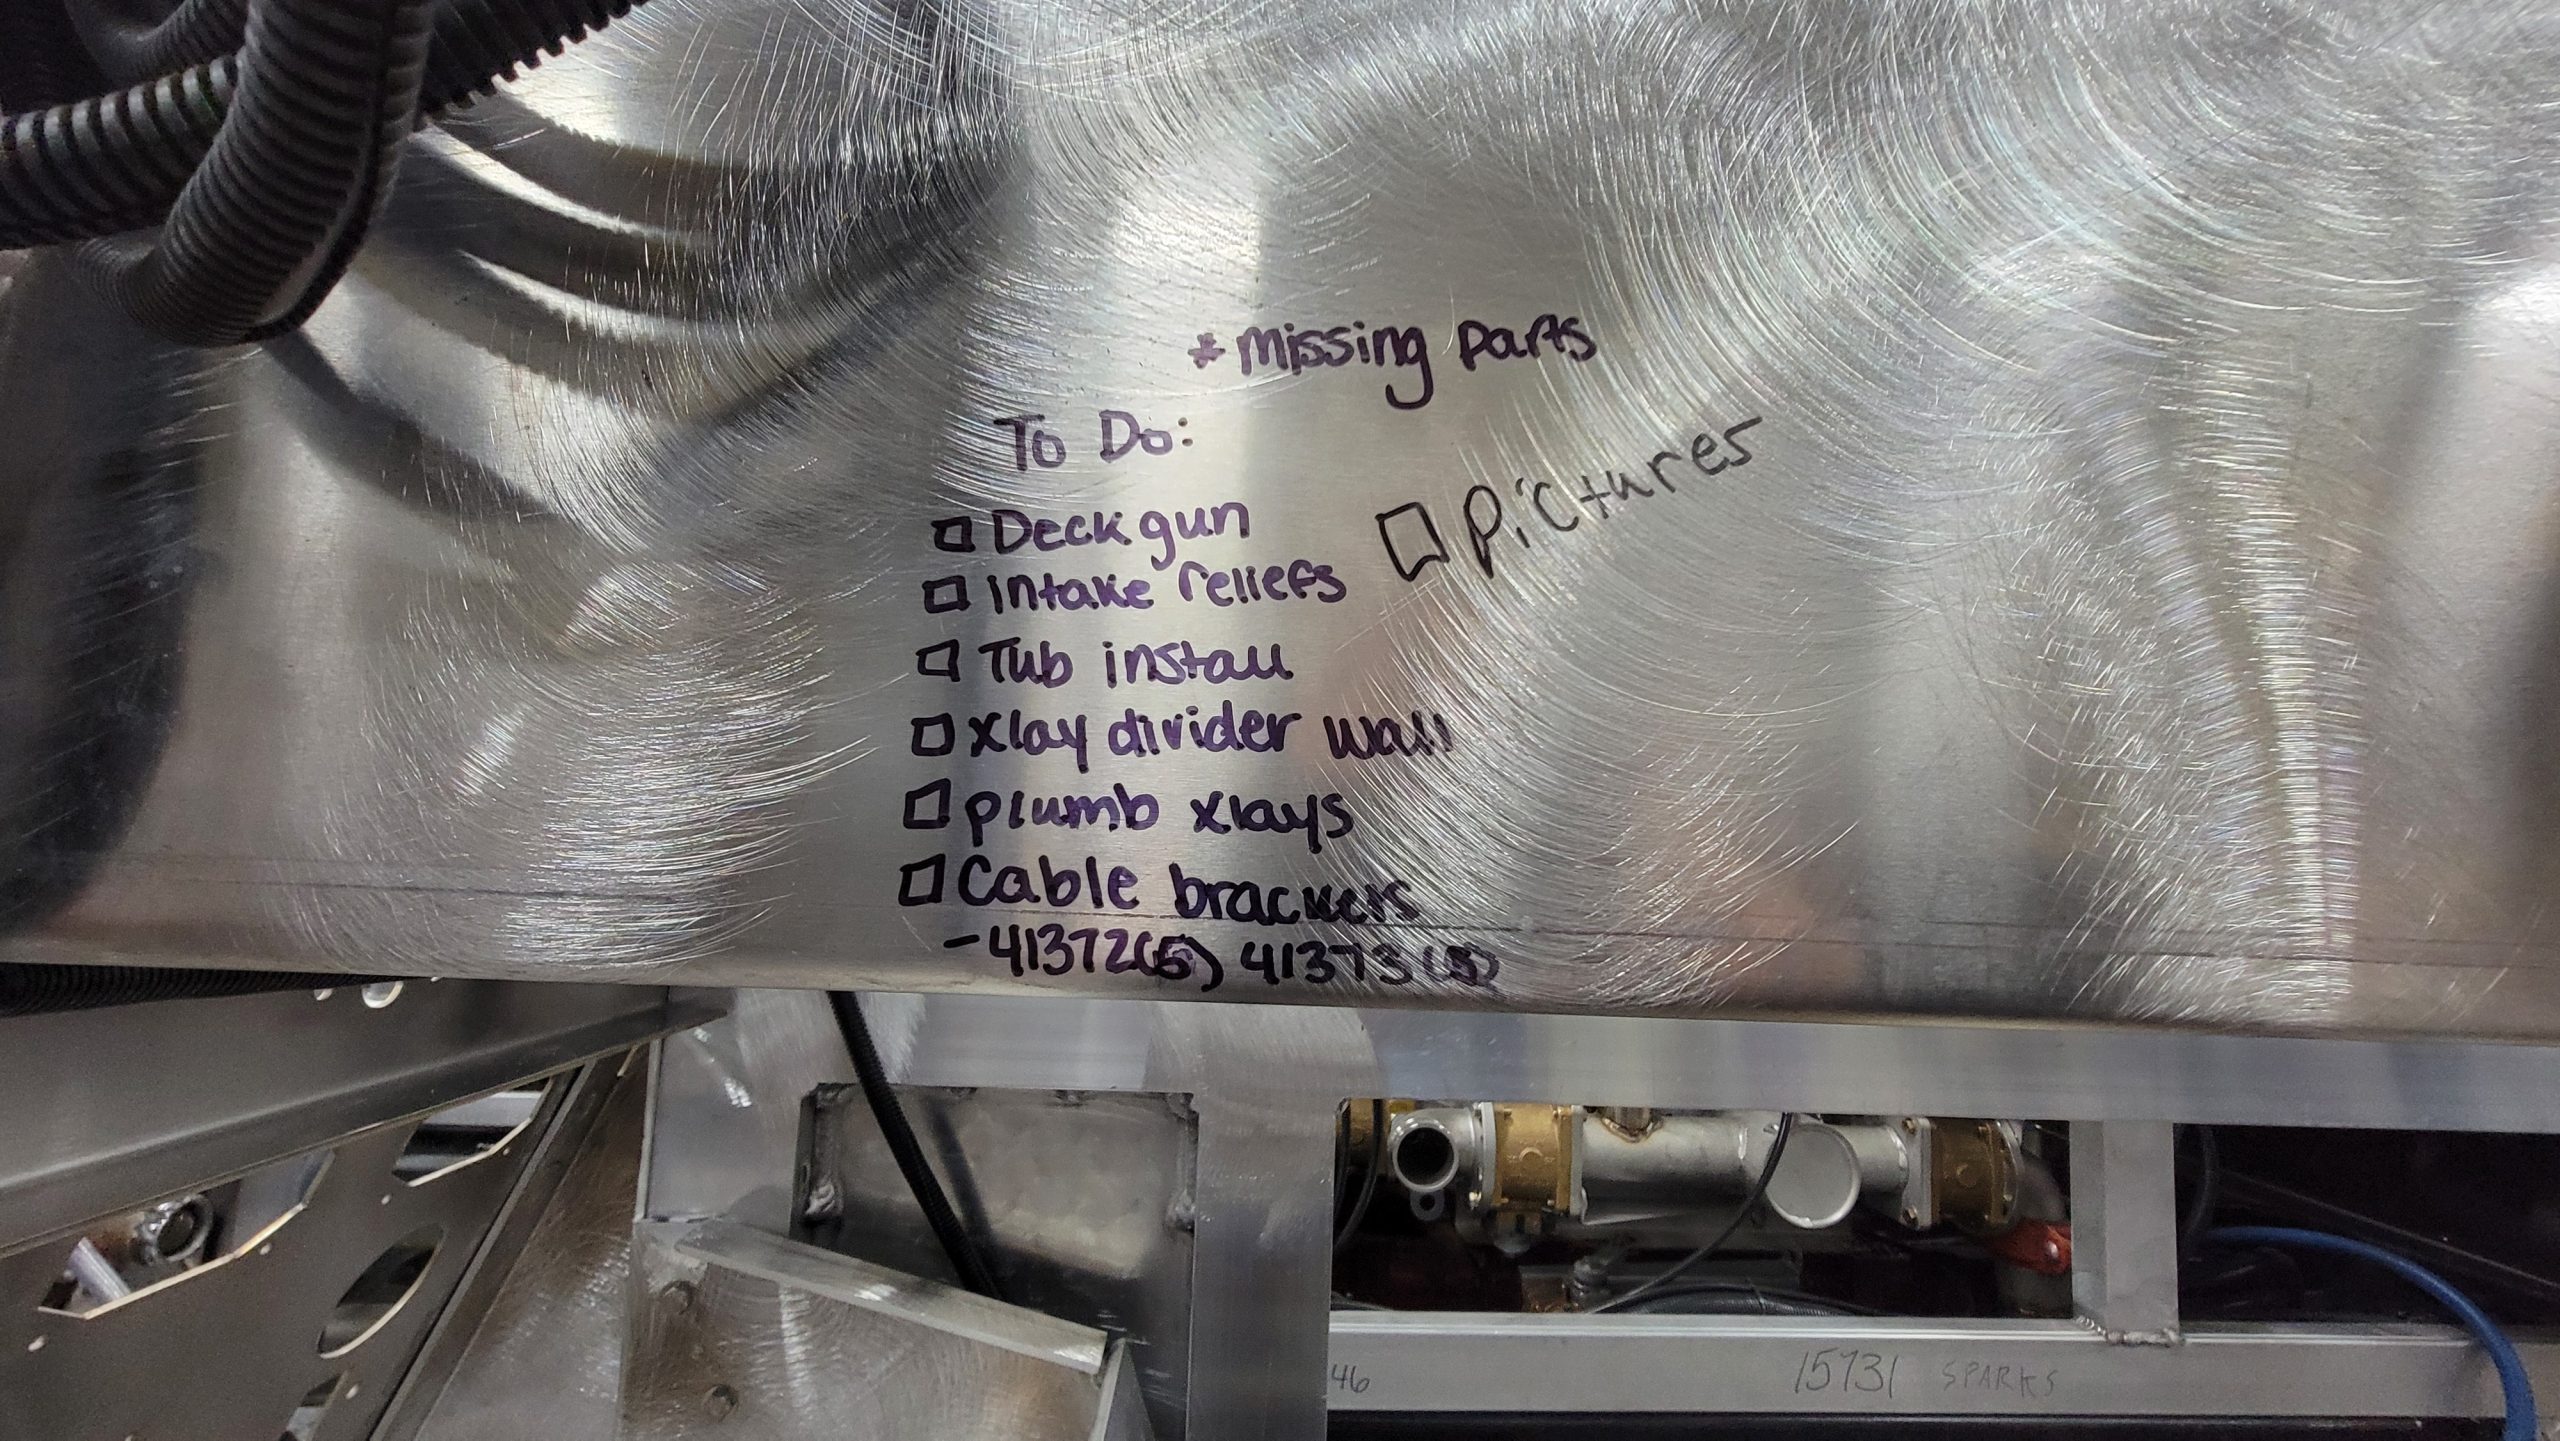 * Missing parts
To Do:
□ Deck gun
□ Pictures
□ intake reliefs
□ Tub install
□ Xlay divider wall
□ plumb xlays
□ Cable brackets
- 41372(5) 41373(5)
46
15731 SPARKS